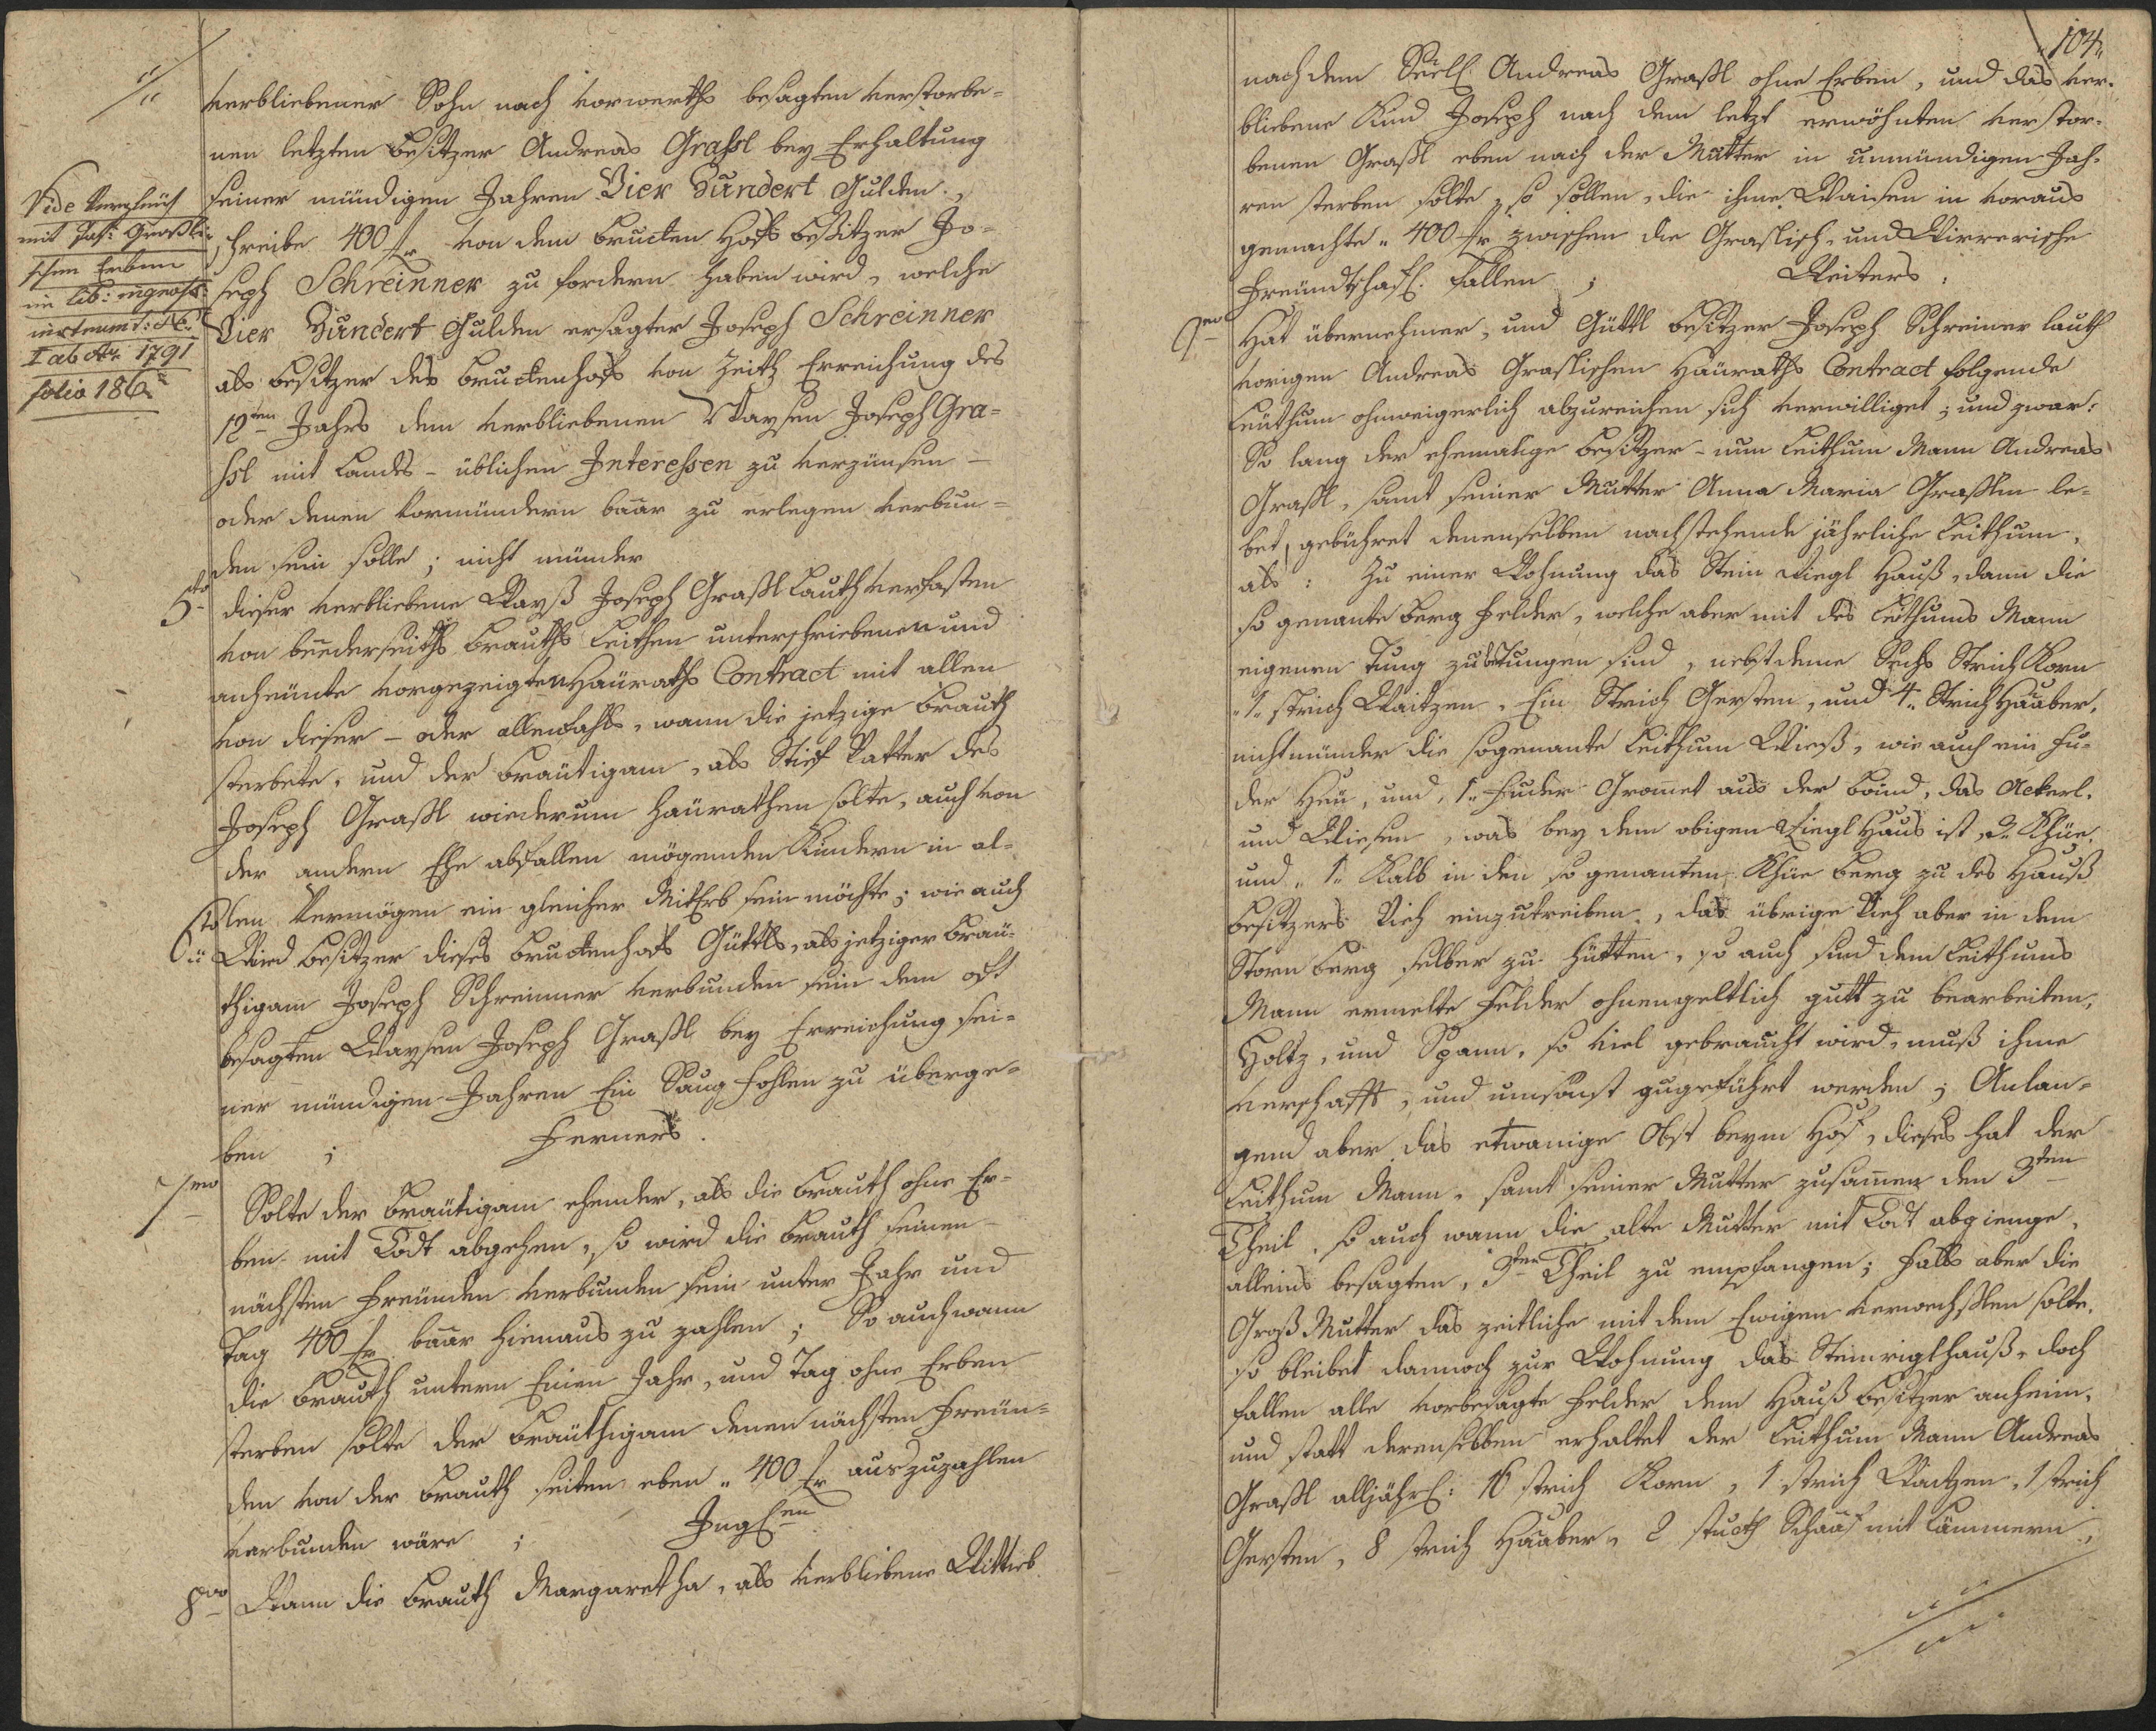 verbliebener Sohn nach vorwerths besagten verstorbe-
nen letzten Besitzer Andreas Grassl bey Erhaltung
seiner mündigen Jahren Vier Hundert Gulden,
schreibe 400 fr von dem Bructen Hofs Besitzer Jo-
seph Schreinner zu fordern haben wird, welche
Vier Hundert Gulden ersagter Joseph Schreinner
als Besitzer des Bructenhofs von Zeith Erreichung des
12ten Jahrs dem verbliebenen Waysen Joseph Gra-
ssl mit Landes-üblichen Interessen zu verzünsen -
oder denen Vormündern baar zu erlegen verbun-
den sein solle; nicht münder
Vide
mit Jos: Graßli-
schen Erben
im lib:
I ab Ao. 1791
folio 186.
5to dieser verbliebene Wayß Joseph Graßl Lauth verfasten
von beederseiths Brauths Leithen unterschriebenen und
anheünte vorgezeigten Haüraths Contract mit allen
von dieser - oder allenfahls, wann die jetzige Brauth
sterbete, und der Bräutigam, als Stief Vatter des
Joseph Graßl wiederum haürathen solte, auch von
der andern Ehe abfallen mögenden Kindern in al-
len Vermögen ein gleicher MitErb sein möchte; wie auch
6to Wird Besitzer dieses Bructenhofs Güttls, als jetziger Bräu-
thigam Joseph Schreinner verbunden sein dem oft
besagten Waysen Joseph Graßl bey Erreichung sei-
ner mündigen Jahren Ein Saug Fohlen zu überge-
ben ; Ferners.
7mo Solte der Bräutigam ehender, als die Brauth ohne Er-
ben mit Todt abgehen, so wird die Brauth seinen
nächsten Freünden verbunden sein unter Jahr und
Tag 400 fr baar hienaus zu zahlen; So auch wann
die Brauth untern Einen Jahr, und Tag ohne Erben
sterben solte der Bräuthigam denen nächsten Freün-
den von der Brauth seiten eben " 400 fr auszuzahlen
verbunden wäre ;
8vo Wann die Brauth Margaretha, als verbliebene Wittib
104
nach dem Seel. Andreas Graßl ohne Erben, und das ver-
bliebene Kind Joseph nach dem letzt erwöhnten verstor-
benen Graßl eben nach der Mutter in unmündigen Jah-
ren sterben solte, so sollen, die ihme Waisen in voraus
gemachte " 400 fr zwischen die Graslisch- und
Freündtschaft. fallen ; Weiters:
9no Hat übernehmer, und Güttl Besitzer Joseph Schreiner lauth
vorigen Andreas Graslischen Haüraths Contract folgende
Leüthum ohnweigerlich abzureichen sich verwilliget; und zwar:
So lang der ehemalige Besitzer - nun Leithum Mann Andreas
Graßl, samt seiner Mutter Anna Maria Graßlin le-
bet, gebühret denenselben nachstehende jährliche Leithum,
als: Zu einer Wohnung das Stein Riegl Hauß, dann die
so genante Berg Felder, welche aber mit des Leithums Mann
eigenen Tung zubetungen sind, nebst deme Sechs Strich Korn
"1" strich Waitzen, Ein Strich Gersten, und "4" Strich Haaber,
nicht münder die sogenante Leithum Wieß, wie auch ein Fu-
der Heü, und 1" Fuder Gromet aus der Baind, das Ackerl,
und Wiesen, was bey dem obigen Riegl Haus ist, 2" Khüe,
und "1" Kalb in den so genanten Khüe Berg zu des Hauß
besitzers Vieh einzutreiben, das übrige Vieh aber in dem
Storn Berg selber zu hütten, so auch sind dem Leithums
Mann ermelte Felder ohnengeltlich gutt zu bearbeiten,
Holtz, und Spann, so viel gebraucht wird, muß ihme
verschafft, und umsonst zugeführt werden; Anlan-
gend aber das etwanige Obst beym Hof, dieses hat der
Leithum Mann, samt seiner Mutter zusamen den 3ten
Theil, so auch wann die alte Mutter mit Todt abgienge,
alleins besagten, 3ten Theil zu empfangen; Falls aber die
Groß Mutter das zeitliche mit dem Ewigen verwechßlen solte,
so bleibet dannoch zur Wohnung das Steinriglhauß, doch
fallen alle vorbesagte Felder dem Hauß Besitzer anheim,
und statt derenselben erhaltet der Leithum Mann Andreas
Graßl alljährl: 16 strich Korn, 1 strich Waitzen, 1 strich
Gersten, 8 strich Haaber, 2 stucth Schaaf mit Lämmern,